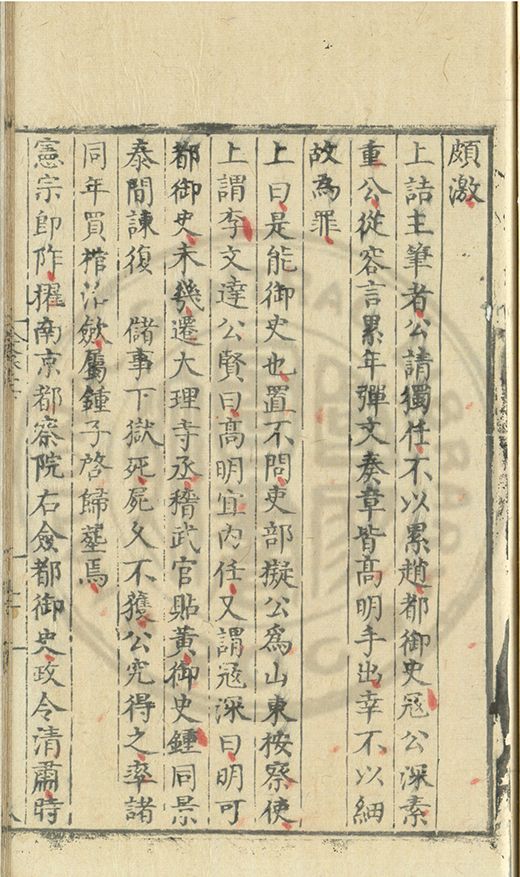 頗激
上詰主筆者公請獨任不以累趙都御史冦公深素
重公從容言累年彈文奏章皆髙明手出幸不以細
故為罪
上曰是能御史也置不問吏部擬公為山東按察使
上謂李文達公賢曰髙明宜内任又謂冦深曰明可
都御史未幾遷大理寺丞稽武官貼黄御史鍾同景
泰間諫復 儲事下獄死屍久不獲公究得之率諸
同年買棺治斂屬鍾子啓歸塟焉
憲宗即阼擢南京都察院右僉都御史政令清肅時